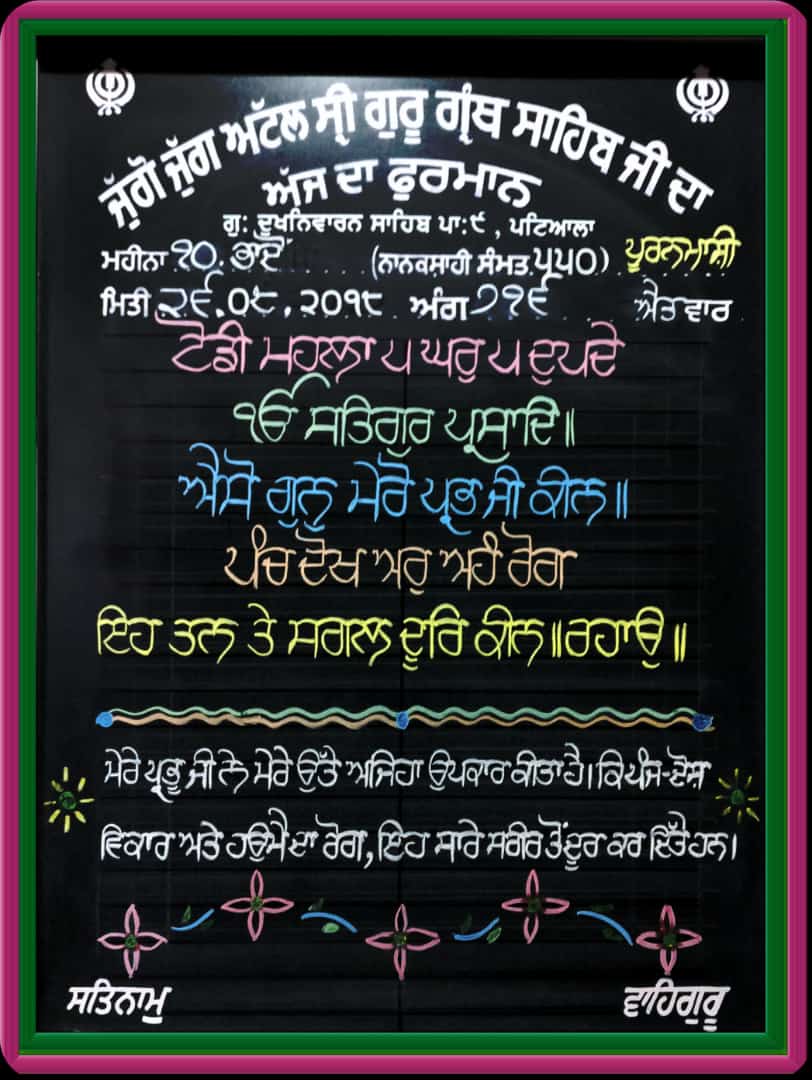 ਜੁੱਗੋ ਜੁੱਗ ਅਟੱਲ ਸ੍ਰੀ ਗੁਰੂ ਗ੍ਰੰਥ ਸਾਹਿਬ ਜੀ ਦਾ
ਅੱਜ ਦਾ ਫੁਰਮਾਨ
ਗੁ: ਦੂਖਨਿਵਾਰਨ ਸਾਹਿਬ ਪਾ:੯ , ਪਟਿਆਲਾ
ਮਹੀਨਾ ੧੦. ਭਾਦੋਂ (ਨਾਨਕਸਾਹੀ ਸੰਮਤ ੫੫੦) ਪੂਰਨਮਾਸ਼ੀ
ਮਿਤੀ ੨੬.੦੮.੨੦੧੮ ਅੰਗ ੭੧੬ ਐਤਵਾਰ
ਟੋਡੀ ਮਹਲਾ ੫ ਘਰੁ ੫ ਦੁਪਦੇ
ੴ ਸਤਿਗੁਰ ਪ੍ਰਸਾਦਿ॥
ਐਸੋ ਗੁਨੁ ਮੇਰੋ ਪ੍ਰਭ ਜੀ ਕੀਨ॥
ਪੰਚ ਦੋਖ ਅਰੁ ਅਹੰ ਰੋਗ
ਇਹ ਤਨ ਤੇ ਸਗਲ ਦੂਰਿ ਕੀਨ॥ਰਹਾਉ॥
ਮੇਰੇ ਪ੍ਰਭੂ ਜੀ ਨੇ ਮੇਰੇ ਉੱਤੇ ਅਜਿਹਾ ਉਪਕਾਰ ਕੀਤਾ ਹੈ। ਕਿ ਪੰਜ-ਦੋਸ਼
ਵਿਕਾਰ ਅਤੇ ਹਉਮੈ ਦਾ ਰੋਗ, ਇਹ ਸਾਰੇ ਸਰੀਰ ਤੋਂ ਦੂਰ ਕਰ ਦਿੱਤੇ ਹਨ।
ਸਤਿਨਾਮੁ ਵਾਹਿਗੁਰੂ